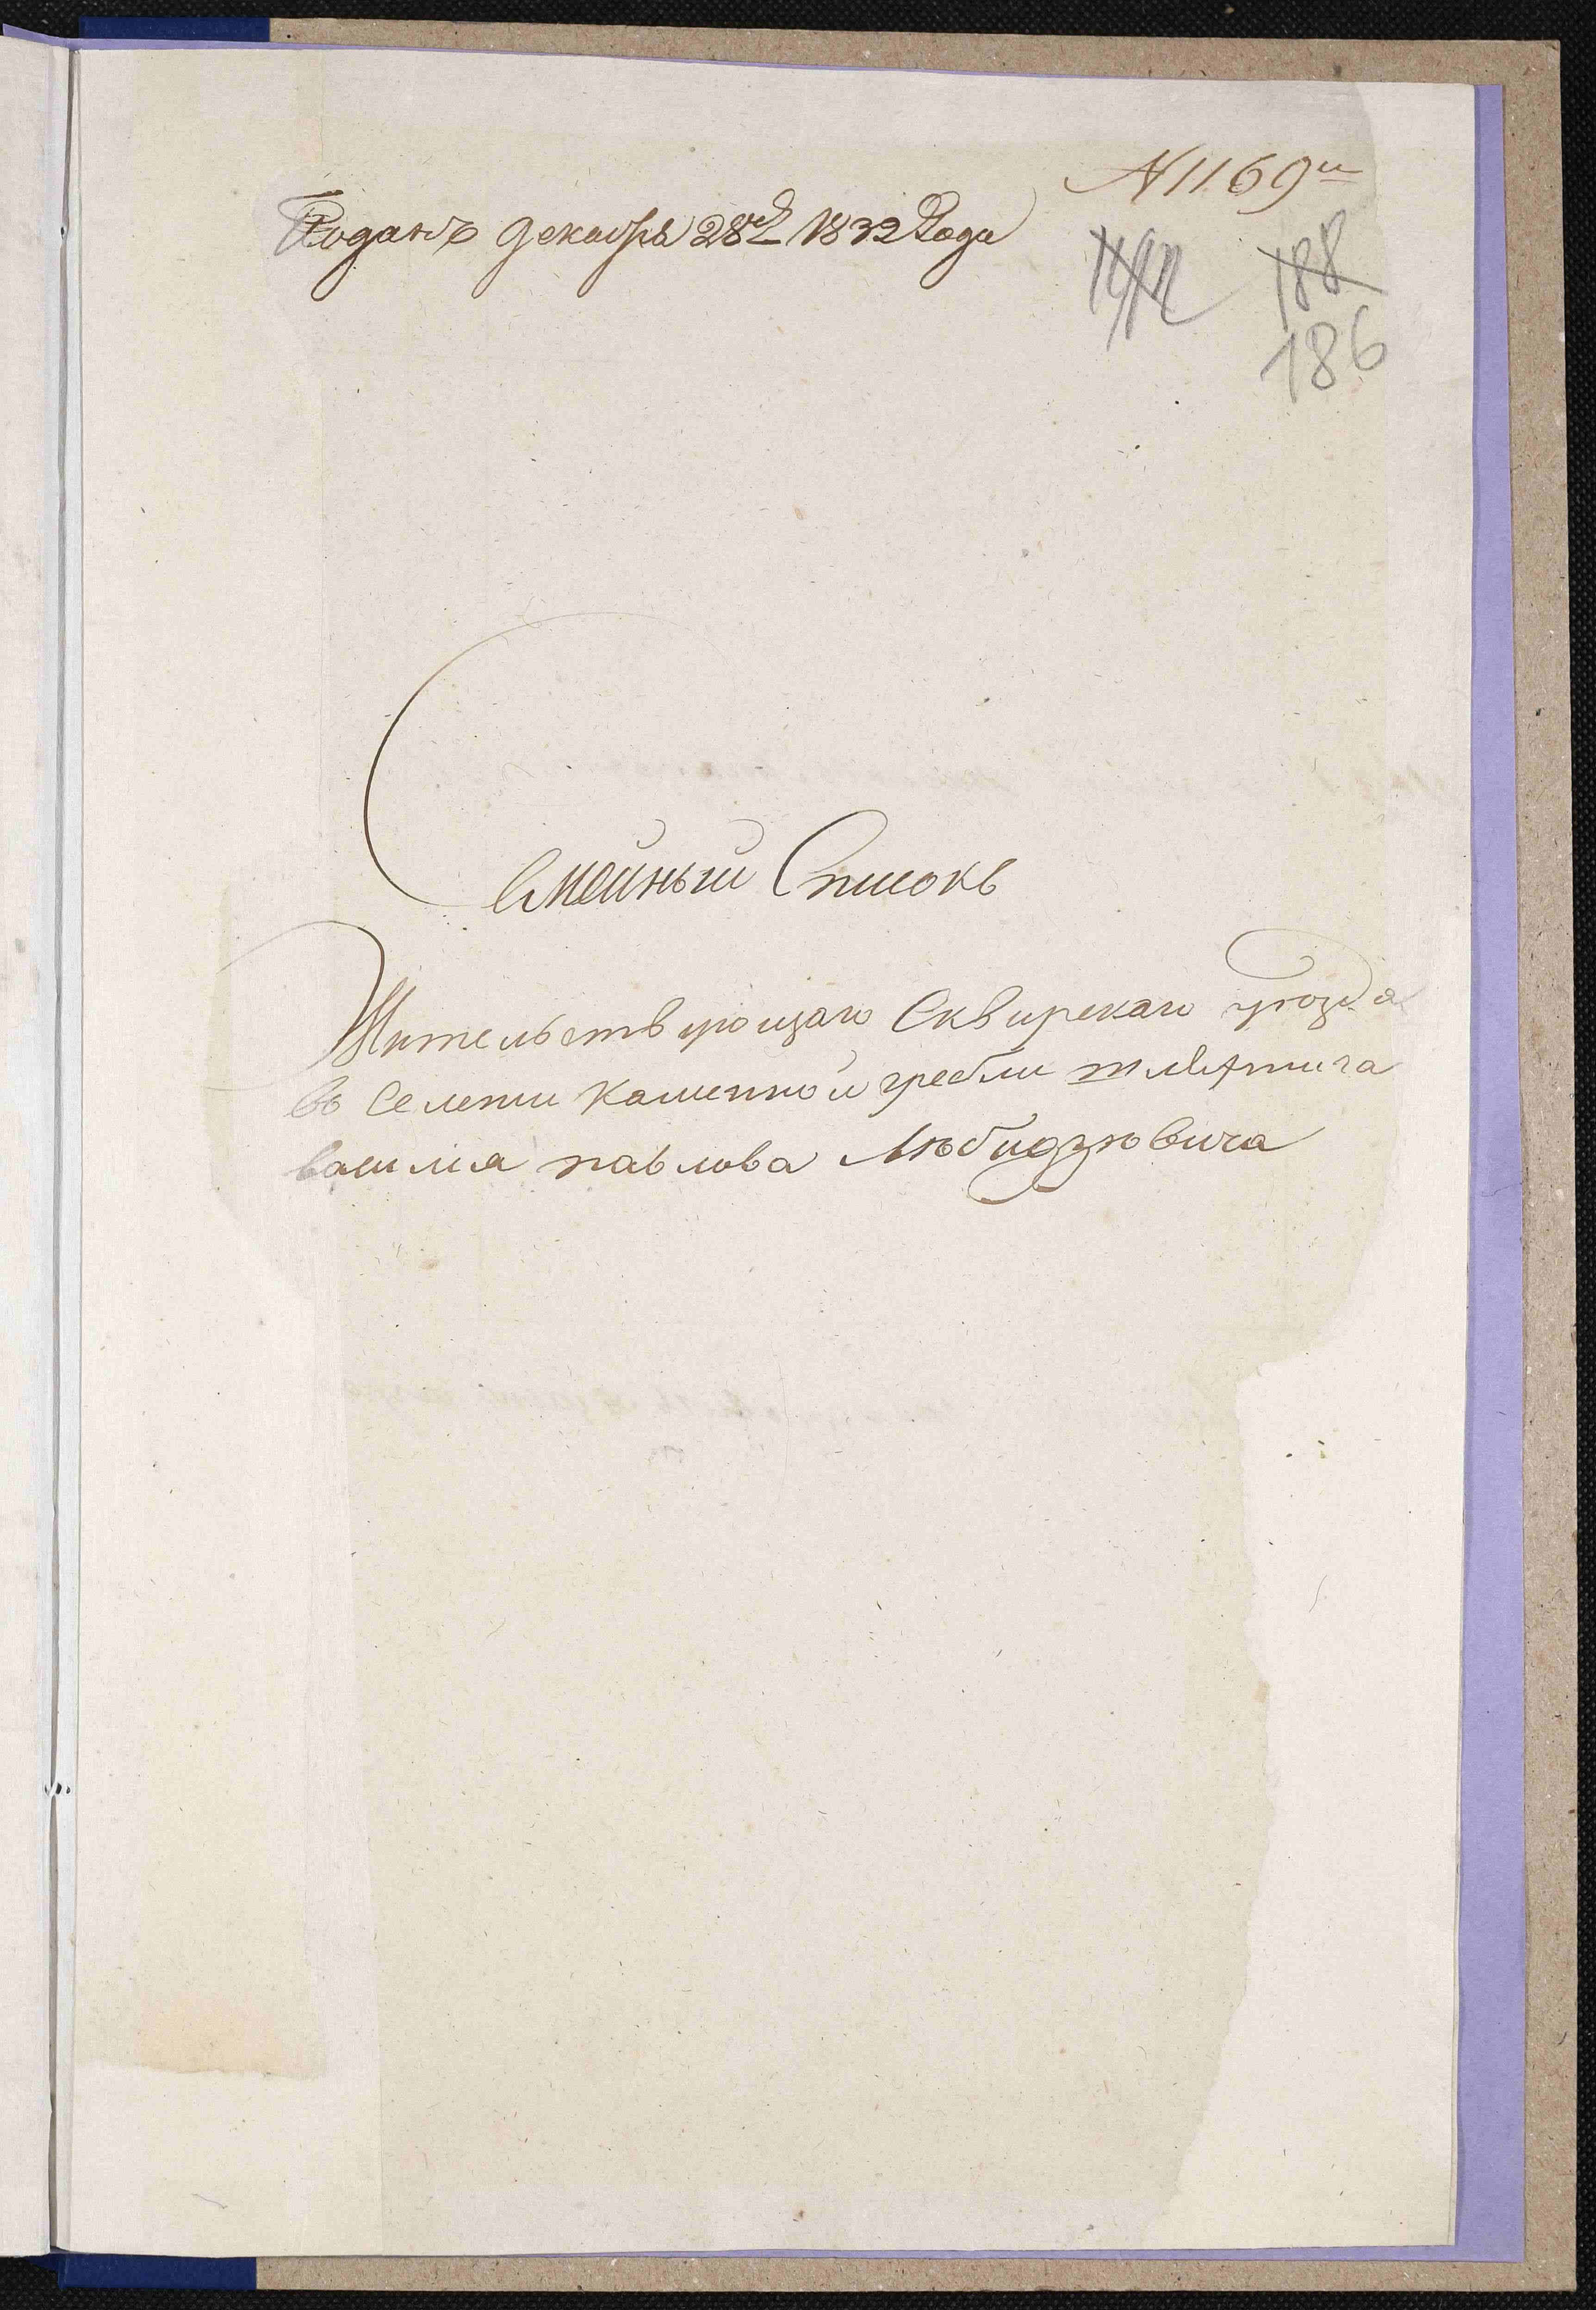 N 1169й
Поданъ декабря 28го 1832 Года
188
186
Семейный Списокъ
Жительствующаго Сквирскаго уезда
въ Селении Каменной гребли шляхтича
василия павлова Любидзювича